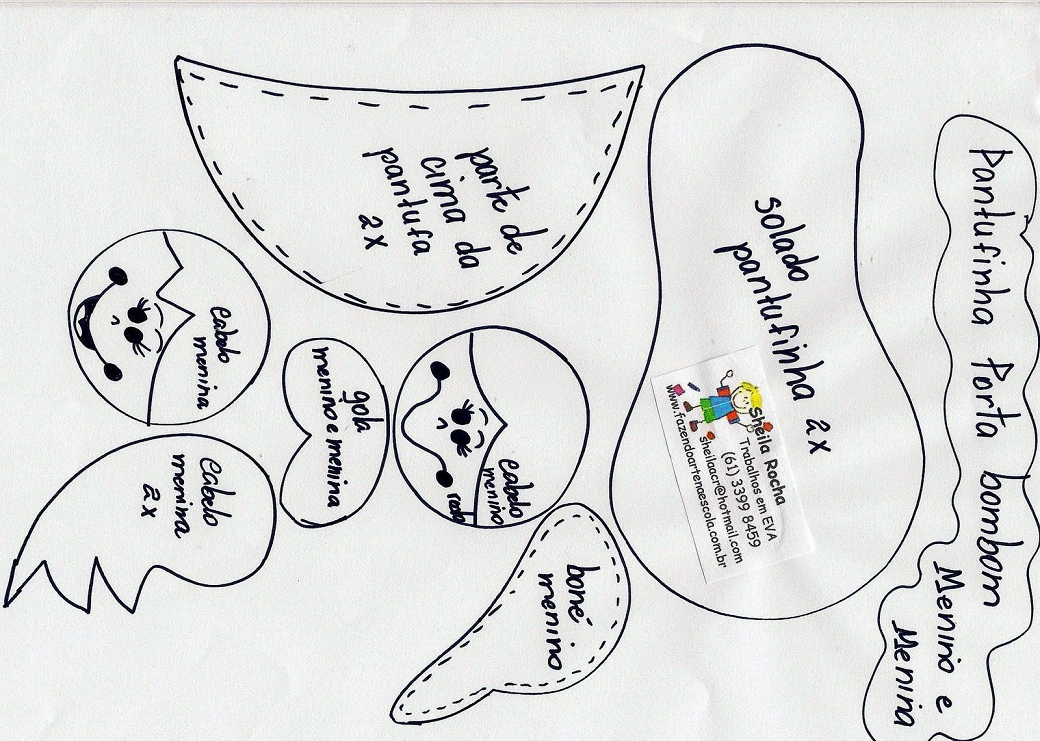 Pantufinha Porta bombom
Menino e
Menina
solado
pantufinha 2x
Sheila Rocha
Trabalhos em EVA
(61) 3399 8459
sheilaacr@hotmail.com
www.fazendoartenaescola.com.br
parte de
cima da
pantufa
2x
cabelo
menino
rosto
boné
menino
gola
menino e menina
cabelo
menina
cabelo
menina
2x